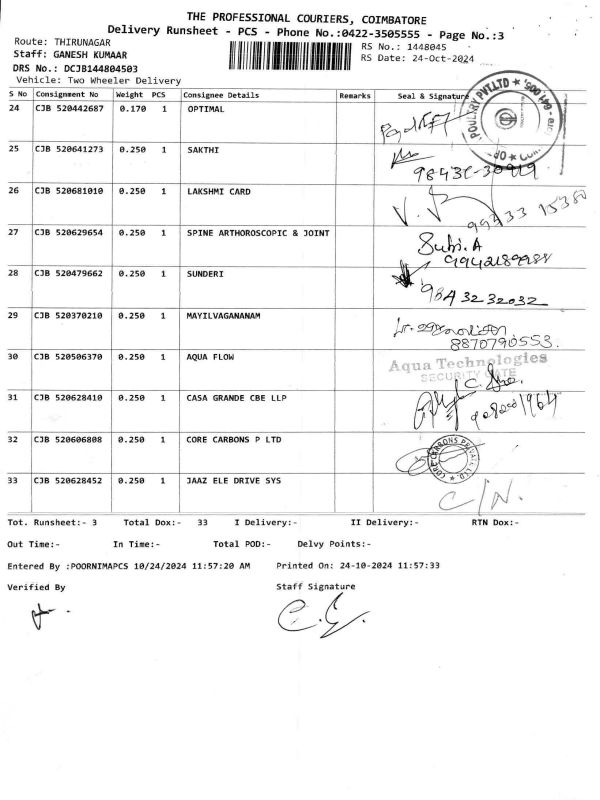 THE PROFESSIONAL COURIERS, COIMBATORE
Delivery Runsheet - PCS - Phone No.:0422-3505555 - Page No.:3
Route: THIRUNAGAR RS No.: 1448045
Staff: GANESH KUMAAR RS Date: 24-Oct-2024
DRS No.: DCJB144804503
Vehicle: Two Wheeler Delivery
S No Consignment No Weight PCS Consignee Details Remarks Seal & Signature
24 CJB 520442687 0.170 1 OPTIMAL
POULTRY PVT.LTD
641 005
25 CJB 520641273 0.250 1 SAKTHI
26 CJB 520681010 0.250 1 LAKSHMI CARD
99433 15380
27 CJB 520629654 0.250 1 SPINE ARTHOROSCOPIC & JOINT
Subi.A
28 CJB 520479662 0.250 1 SUNDERI
984 32 32032
29 CJB 520370210 0.250 1 MAYILVAGANANAM
8870790553.
30 CJB 520506370 0.250 1 AQUA FLOW Aqua Technologies
SECURITY GATE
31 CJB 520628410 0.250 1 CASA GRANDE CBE LLP
32 CJB 520606808 0.250 1 CORE CARBONS P LTD
CORE CARBONS PRIVATE LTD.
33 CJB 520628452 0.250 1 JAAZ ELE DRIVE SYS
C/N.
Tot. Runsheet:- 3 Total Dox:- 33 I Delivery:- II Delivery:- RTN Dox:-
Out Time:- In Time:- Total POD:- Delvy Points:-
Entered By :POORNIMAPCS 10/24/2024 11:57:20 AM Printed On: 24-10-2024 11:57:33
Verified By Staff Signature